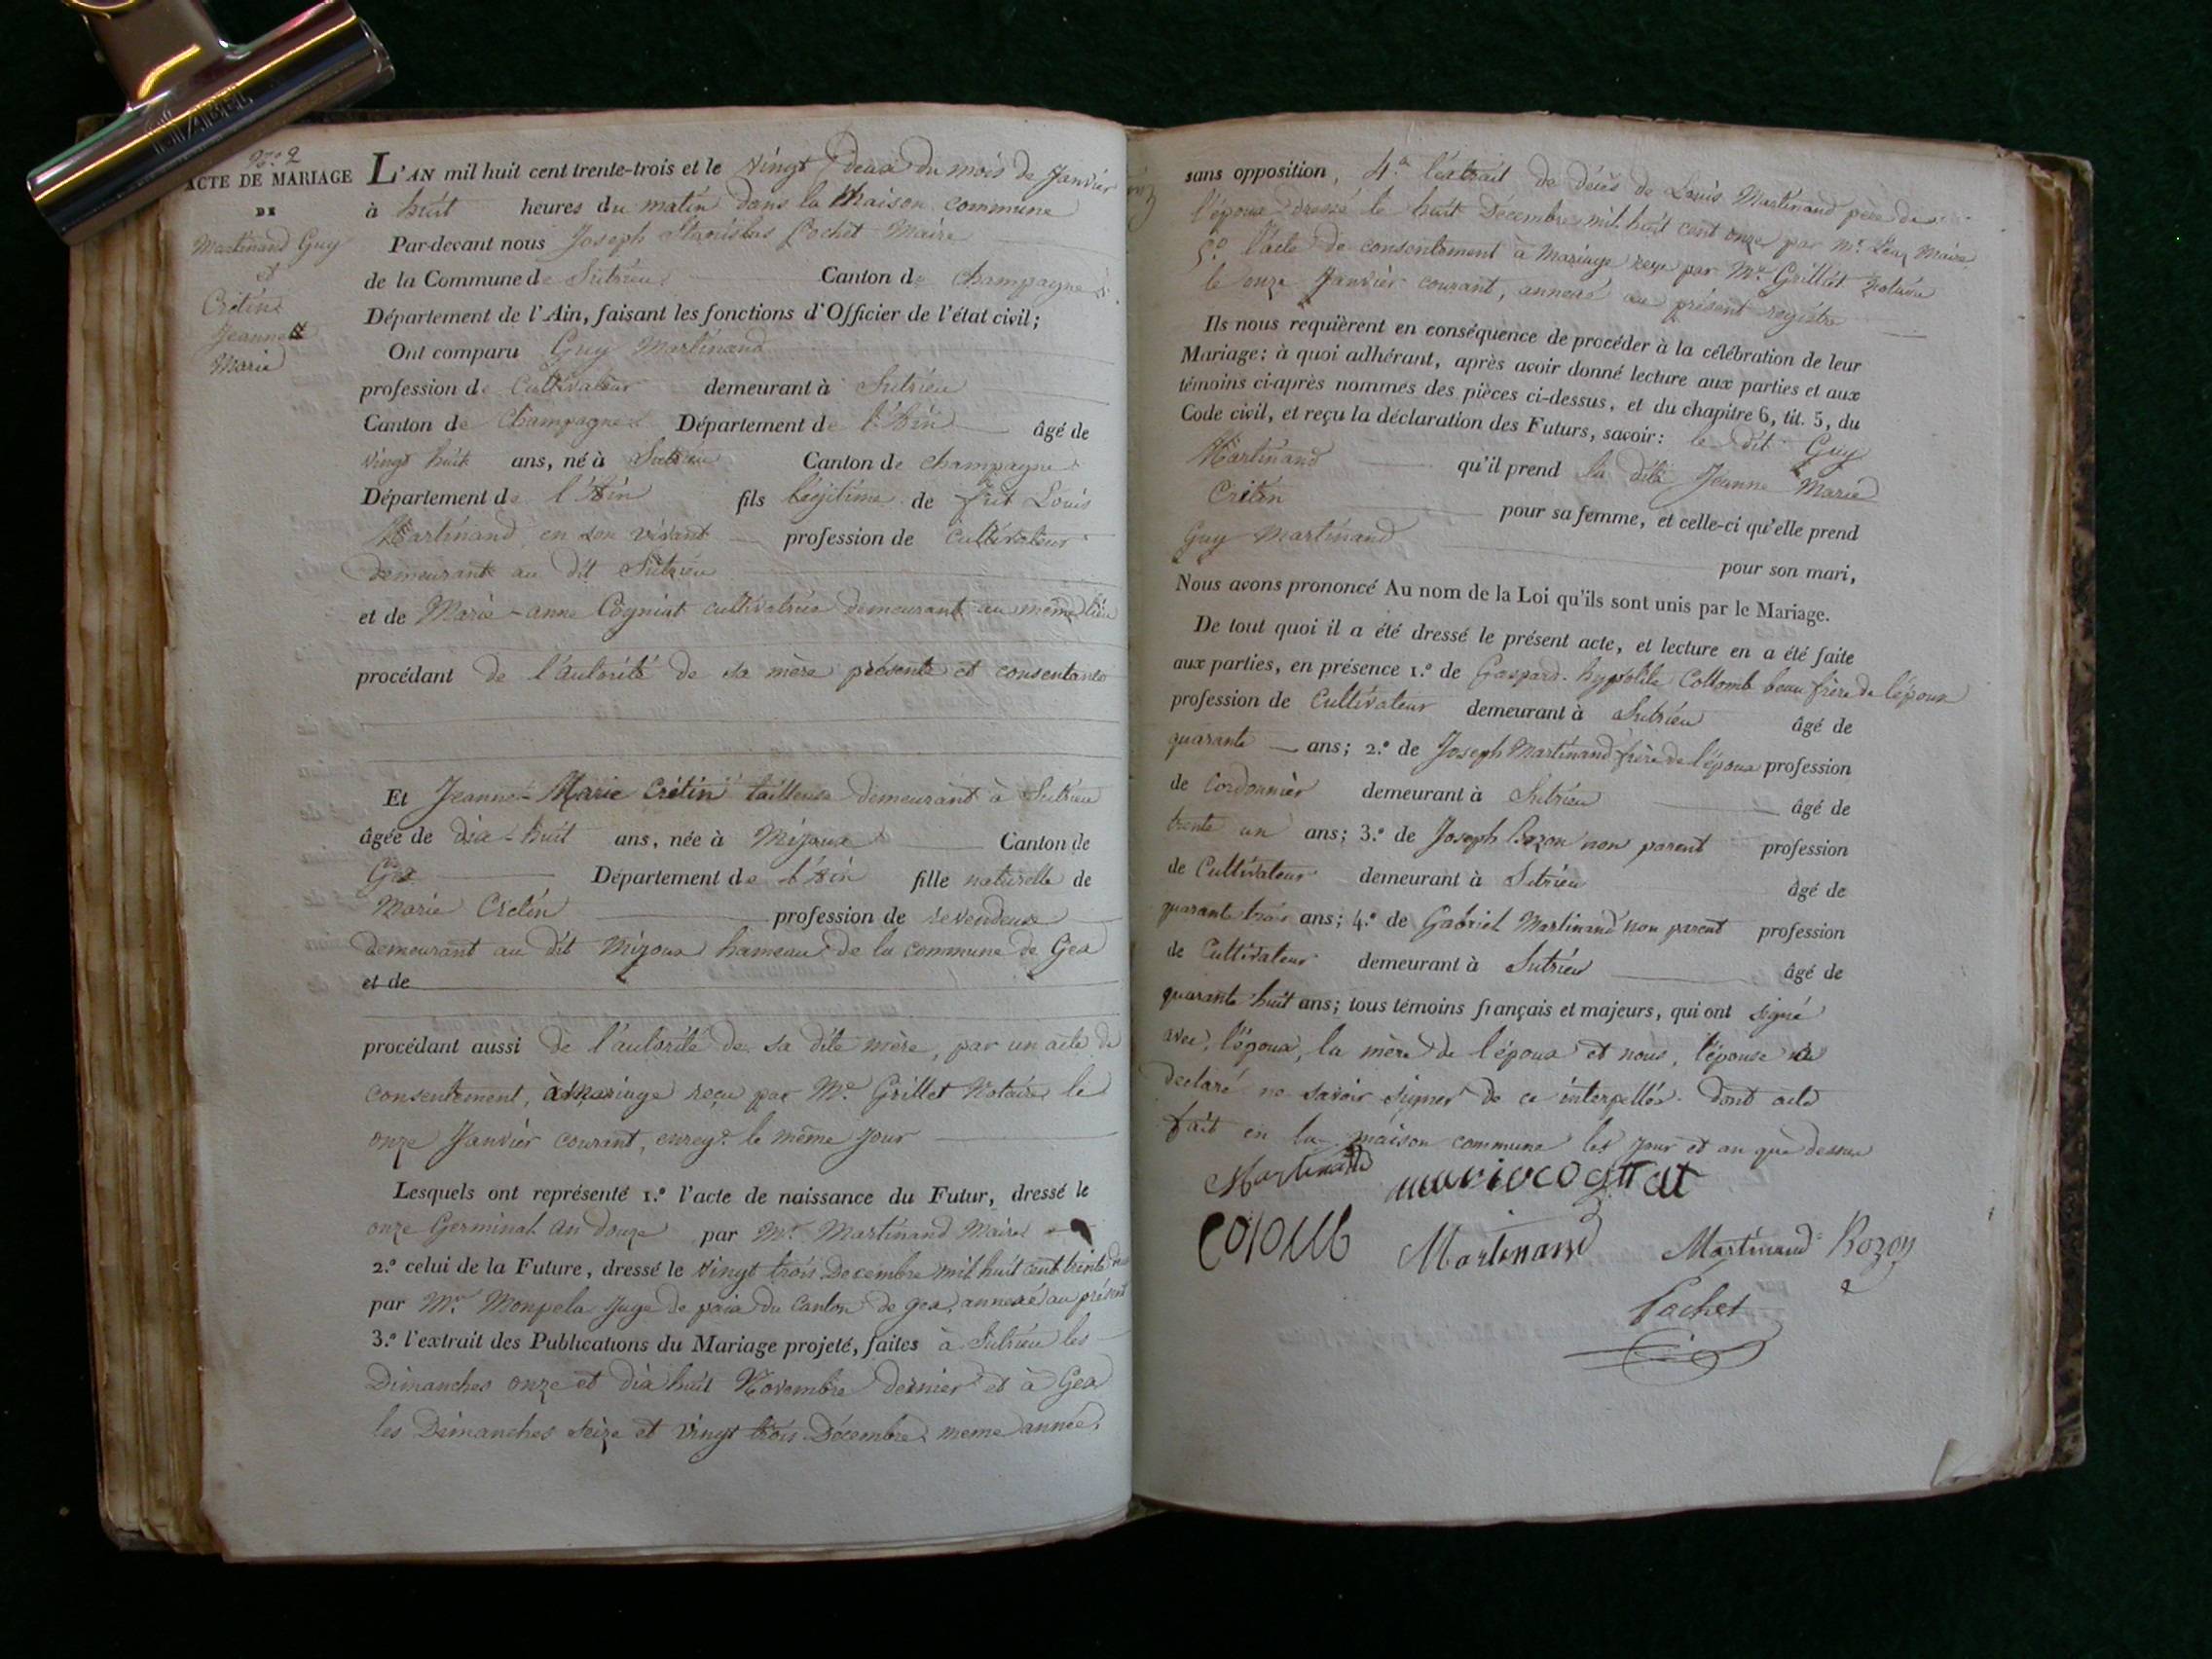 N.o 2
ACTE DE MARIAGE
DE
Martinand Guy
et
Crétin
Jeanne
Marie
L'AN mil huit cent trente-trois et le vingt deux du mois de Janvier
à huit heures du matin dans la Maison commune
Par-devant nous Joseph Stanislas Pochet Maire
de la Commune de Sutrieu Canton de Champagne
Département de l'Ain, faisant les fonctions d'Officier de l'état civil;
Ont comparu Guy Martinand
profession de Cultivateur demeurant à Sutrieu
Canton de Champagne Département de l'Ain âgé de
vingt huit ans, né à Sutrieu Canton de champagne
Département de l'Ain fils légitime de feut Louis
Martinand en son vivant profession de Cultivateur
demeurant au dit Sutrieu
et de Marie-anne Cogniat cultivatrice demeurant au même lieu
procédant de l'autorité de sa mère présente et consentante
Et Jeanne-Marie Crétin tailleuse demeurant à Sutrieu
âgée de dix-huit ans, née à Mijoux Canton de
Gex Département de l'Ain fille naturelle de
Marie Cretin profession de revendeuse
demeurant au dit Mijoux hameau de la commune de Gex
et de
procédant aussi de l'autorité de sa dite mère, par un acte de
consentement, à mariage reçu par Me Grillet Notaire le
onze Janvier courant, enreg.é le même jour
Lesquels ont représenté 1.º l'acte de naissance du Futur, dressé le
onze Germinal an douze par Mr. Martinand Maire
2.º celui de la Future, dressé le vingt trois Decembre mil huit cent trente deux
par Mr. Monpela Juge de paix du Canton de gex, annexé au présent
3.º l'extrait des Publications du Mariage projeté, faites à Sutrieu les
Dimanches onze et dix huit Novembre dernier et à Gex
les Dimanches seize et vingt trois Décembre meme année,
sans opposition, 4.º l'extrait de décès de Louis Martinand père de
l'époux dressé le huit Decembre mil huit cent onze par Mr. Maire
5.º l'acte de consentement à Mariage reçu par Me. Grillet Notaire
le onze Janvier courant, annexé au présent registre
Ils nous requièrent en conséquence de procéder à la célébration de leur
Mariage; à quoi adhérant, après avoir donné lecture aux parties et aux
témoins ci-après nommés des pièces ci-dessus, et du chapitre 6, tit. 5, du
Code civil, et reçu la déclaration des Futurs, savoir: le dit Guy
Martinand qu'il prend la dite Jeanne Marie
Crétin pour sa femme, et celle-ci qu'elle prend
Guy Martinand pour son mari,
Nous avons prononcé Au nom de la Loi qu'ils sont unis par le Mariage.
De tout quoi il a été dressé le présent acte, et lecture en a été faite
aux parties, en présence 1.º de Gaspard-hypolite Collomb beau frère de l'époux
profession de Cultivateur demeurant à Sutrieu âgé de
quarante ans; 2.º de Joseph Martinand frère de l'époux profession
de Cordonnier demeurant à Sutrieu âgé de
trente un ans; 3.º de Joseph Bozon non parent profession
de Cultivateur demeurant à Sutrieu âgé de
quarante trois ans; 4.º de Gabriel Martinand non parent profession
de Cultivateur demeurant à Sutrieu âgé de
quarante huit ans; tous témoins français et majeurs, qui ont signé
avec l'époux, la mère de l'époux et nous, l'épouse a
declaré ne savoir signer de ce interpellée. dont acte
fait en la maison commune les jour et an que dessus
Martinand mariecogniat
Colomb Martinand Martinand Bozon
Pochet